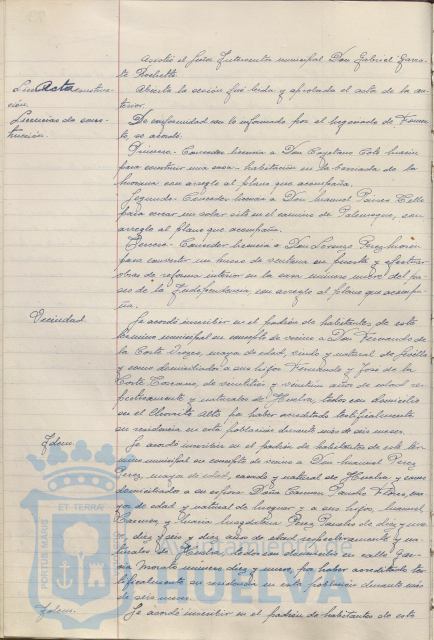 Asistió el Señor Interventor municipal Don Gabriel
Rochette.
Abierta la sesión fué leida y aprobada el acta de la an-
terior.
Acta
Licencias de cons-
trucción.
De conformidad con lo informado por el Negociado de Fomen-
to, se acordó:
Primero.- Conceder licencia a Don Cayetano
para construir una casa-habitación en la barriada de la
con arreglo al plano que acompaña.
Segundo.- Conceder licencia a Don Manuel Tello
para cercar un solar sito en el camino de con
arreglo al plano que acompaña.
Tercero.- Conceder licencia a Don Lorenzo Perez
para convertir un hueco de ventana en puerta y efectuar
obras de reforma interior en la casa número nueve del pa-
seo de la Independencia, con arreglo al plano que acompa-
ña.
Vecindad.
Se acordó inscribir en el padrón de habitantes de este
término municipal en concepto de vecino a Don Fernando de
la Corte mayor de edad, viudo y natural de
y como domiciliados a sus hijos Fernando y José de la
Corte de veintidos y veintiun años de edad res-
pectivamente y naturales de Huelva, todos con domicilio
en el Alto por haber acreditado testificalmente
su residencia en esta población durante más de seis meses.
Idem.
Se acordó inscribir en el padrón de habitantes de este tér-
mino municipal en concepto de vecino a Don Manuel Perez
Perez, mayor de edad, casado y natural de Huelva, y como
domiciliados a su esposa Doña Carmen Flores, ma-
yor de edad y natural de y a sus hijos, Manuel,
Carmen y Perez de diez y nue-
ve, diez y seis y diez años de edad respectivamente y na-
turales de Huelva, todos con domicilio en calle Gar-
cia Morato número diez y nueve, por haber acreditado tes-
tificalmente su residencia en esta población durante más
de seis meses.
Idem.
Se acordó inscribir en el padrón de habitantes de este
ET TERRA
PORTUS MARIS
Ayuntamiento de
HUELVA